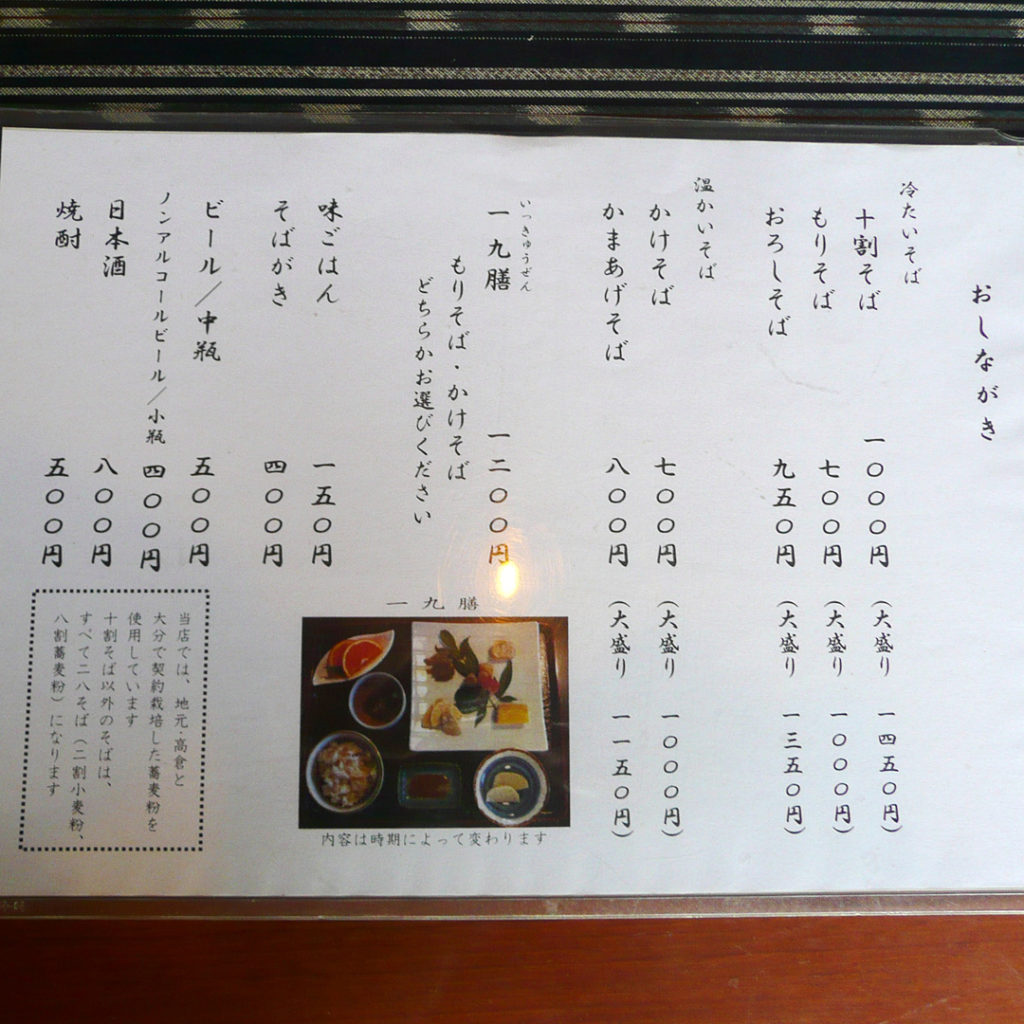 おしながき
冷たいそば
十割そば 一〇〇〇円 (大盛り 一四五〇円)
もりそば 七〇〇円 (大盛り 一〇〇〇円)
おろしそば 九五〇円 (大盛り 一三五〇円)
温かいそば
かけそば 七〇〇円 (大盛り 一〇〇〇円)
かまあげそば 八〇〇円 (大盛り 一一五〇円)
いっきゅうぜん
一九膳 一二〇〇円
もりそば・かけそば
どちらかお選びください
味ごはん 一五〇円
そばがき 四〇〇円
ビール/中瓶 五〇〇円
ノンアルコールビール/小瓶 四〇〇円
日本酒 八〇〇円
焼酎 五〇〇円
一九膳
内容は時期によって変わります
当店では、地元・高倉と
大分で契約栽培した蕎麦粉を
使用しています
十割そば以外のそばは、
すべて二八そば(二割小麦粉、
八割蕎麦粉)になります